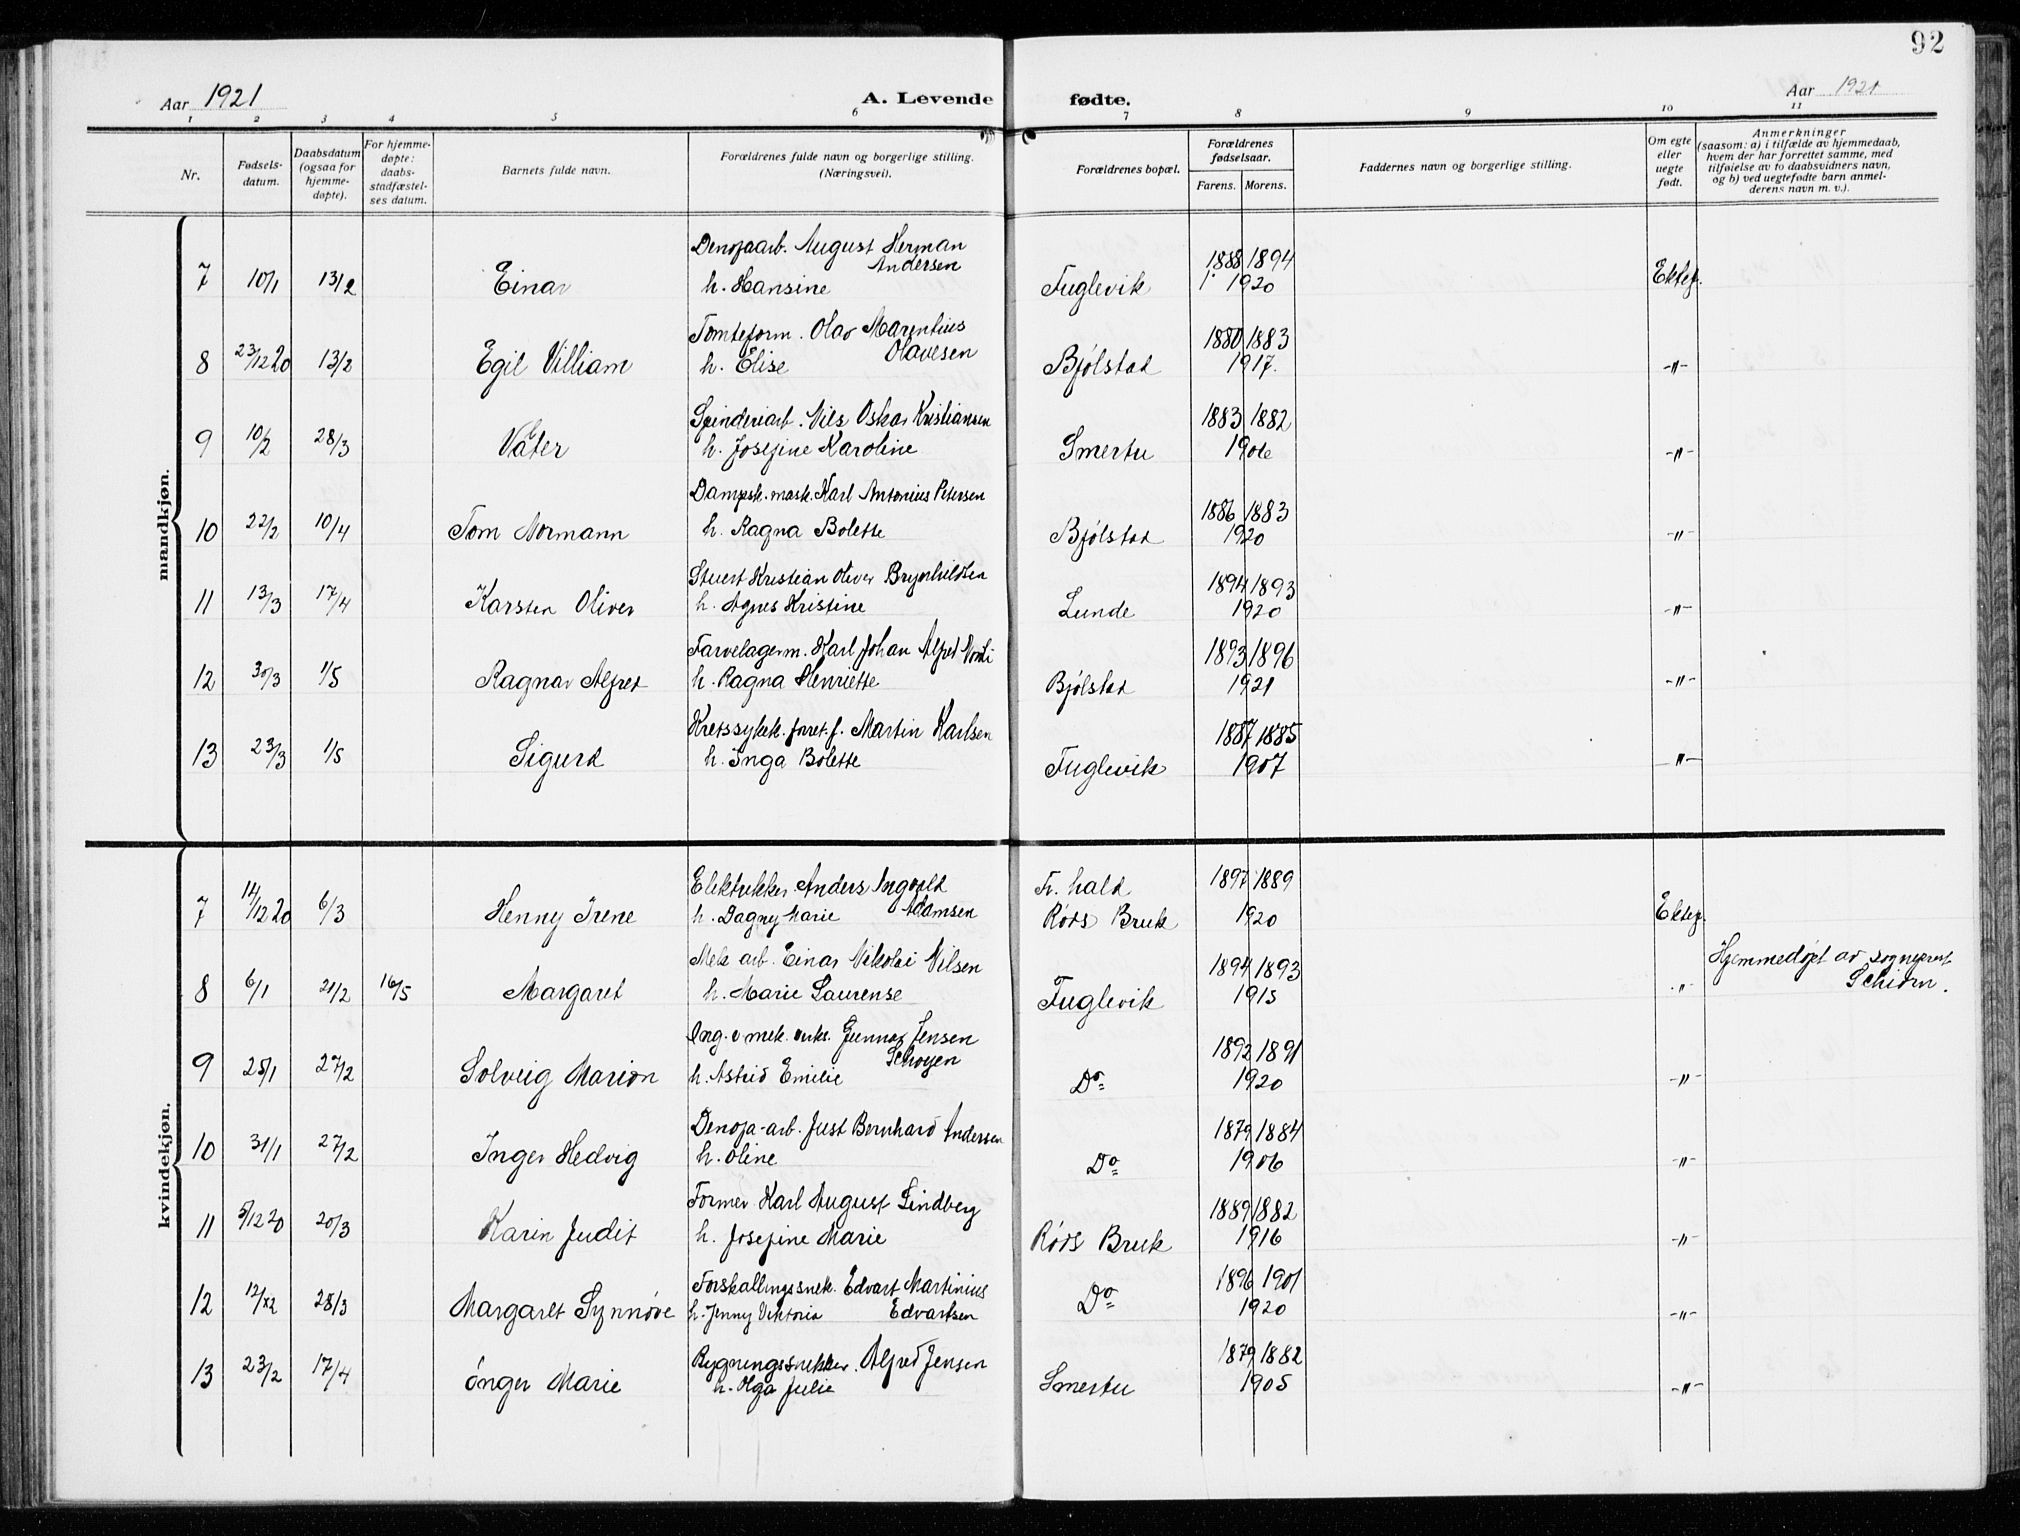 92
Aar 1921
A. Levende fødte.
Aar 1921
1 2 3 4 5 6 7 8 9 10 11
Nr.
Fødsels-
datum.
Daabsdatum
(ogsaa for
hjemme-
døpte).
For hjemme-
døpte:
daabs-
stadfæstel-
ses datum.
Barnets fulde navn.
Forældrenes fulde navn og borgerlige stilling.
(Næringsvei).
Forældrenes bopæl.
Forældrenes
fødselsaar.
Farens. Morens.
Faddernes navn og borgerlige stilling.
Om egte
eller
uegte
født.
Anmerkninger
(saasom: a) i tilfælde av hjemmedaab,
hvem der har forrettet samme, med
tilføielse av to daabsvidners navn,
og b) ved uegtefødte barn anmel-
derens navn m. v.).
mandkjøn.
Denofaarb. August Herman
Andersen 1888 1894
7 10/1 13/2 Einar h. Hansine Fuglevik 1920 Ektef.
Tomteform. Olav Marentius
Olavesen 1880 1883
8 23/12 20 13/2 Egil Villiam h. Elise Bjølstad 1917. -"-
Spinderiarb. Nils Oskar Kristiansen 1883 1882
9 10/2 28/3 Valter h. Josefine Karoline Smertu 1906 -"-
Dampsk. mask. Karl Antonius Petersen 1886 1883
10 22/2 10/4 Tom Normann h. Ragna Bolette Bjølstad 1920 -"-
Stuert Kristian Oliver Brynhildsen 1894 1893
11 13/3 17/4 Karsten Oliver h. Agnes Kristine Lunde 1920 -"-
Farvelagerm. Karl Johan Alfred 1893 1896
12 30/3 1/5 Ragnar Alfred h. Ragna Henriette Bjølstad 1921 -"-
Kretssykek. forret.f. Martin Karlsen 1887 1885
13 23/3 1/5 Sigurd h. Inga Bolette Fuglevik 1907 -"-
kvindekjøn.
Elektrikker Anders Ingvald Fr. hald 1897 1889
7 14/12 20 6/3 Henny Irene h. Dagny Marie Adamsen Røds Bruk 1920 Ektef.
Mek arb. Einar Nikolai Nilsen 1894 1893 Hjemmedøpt av sogneprest
8 6/1 21/2 16/5 Margaret h. Marie Laurense Fuglevik 1915 -"- Schiørn.
Ing. v mek. verks. Gunnar Jensen
Schøyen 1892 1891
9 25/1 27/2 Solveig Marion h. Astrid Emilie Do 1920 -"-
Denofa-arb. Just Bernhard Andersen 1879 1884
10 31/1 27/2 Inger Hedvig h. Oline Do 1906 -"-
Former Karl August Lindberg 1889 1882
11 5/12 20 20/3 Karin Judit h. Josefine Marie Røds Bruk 1916 -"-
Forskallingssnek. Edvart Martinius 1896 1901
12 28/3 Margaret Synnøve h. Jenny Viktoria Edvartsen Do 1920 -"-
Rygningssnekker. Alfred Jensen 1879 1882
13 23/2 17/4 Inger Marie h. Olga Julie Smertu 1905 -"-